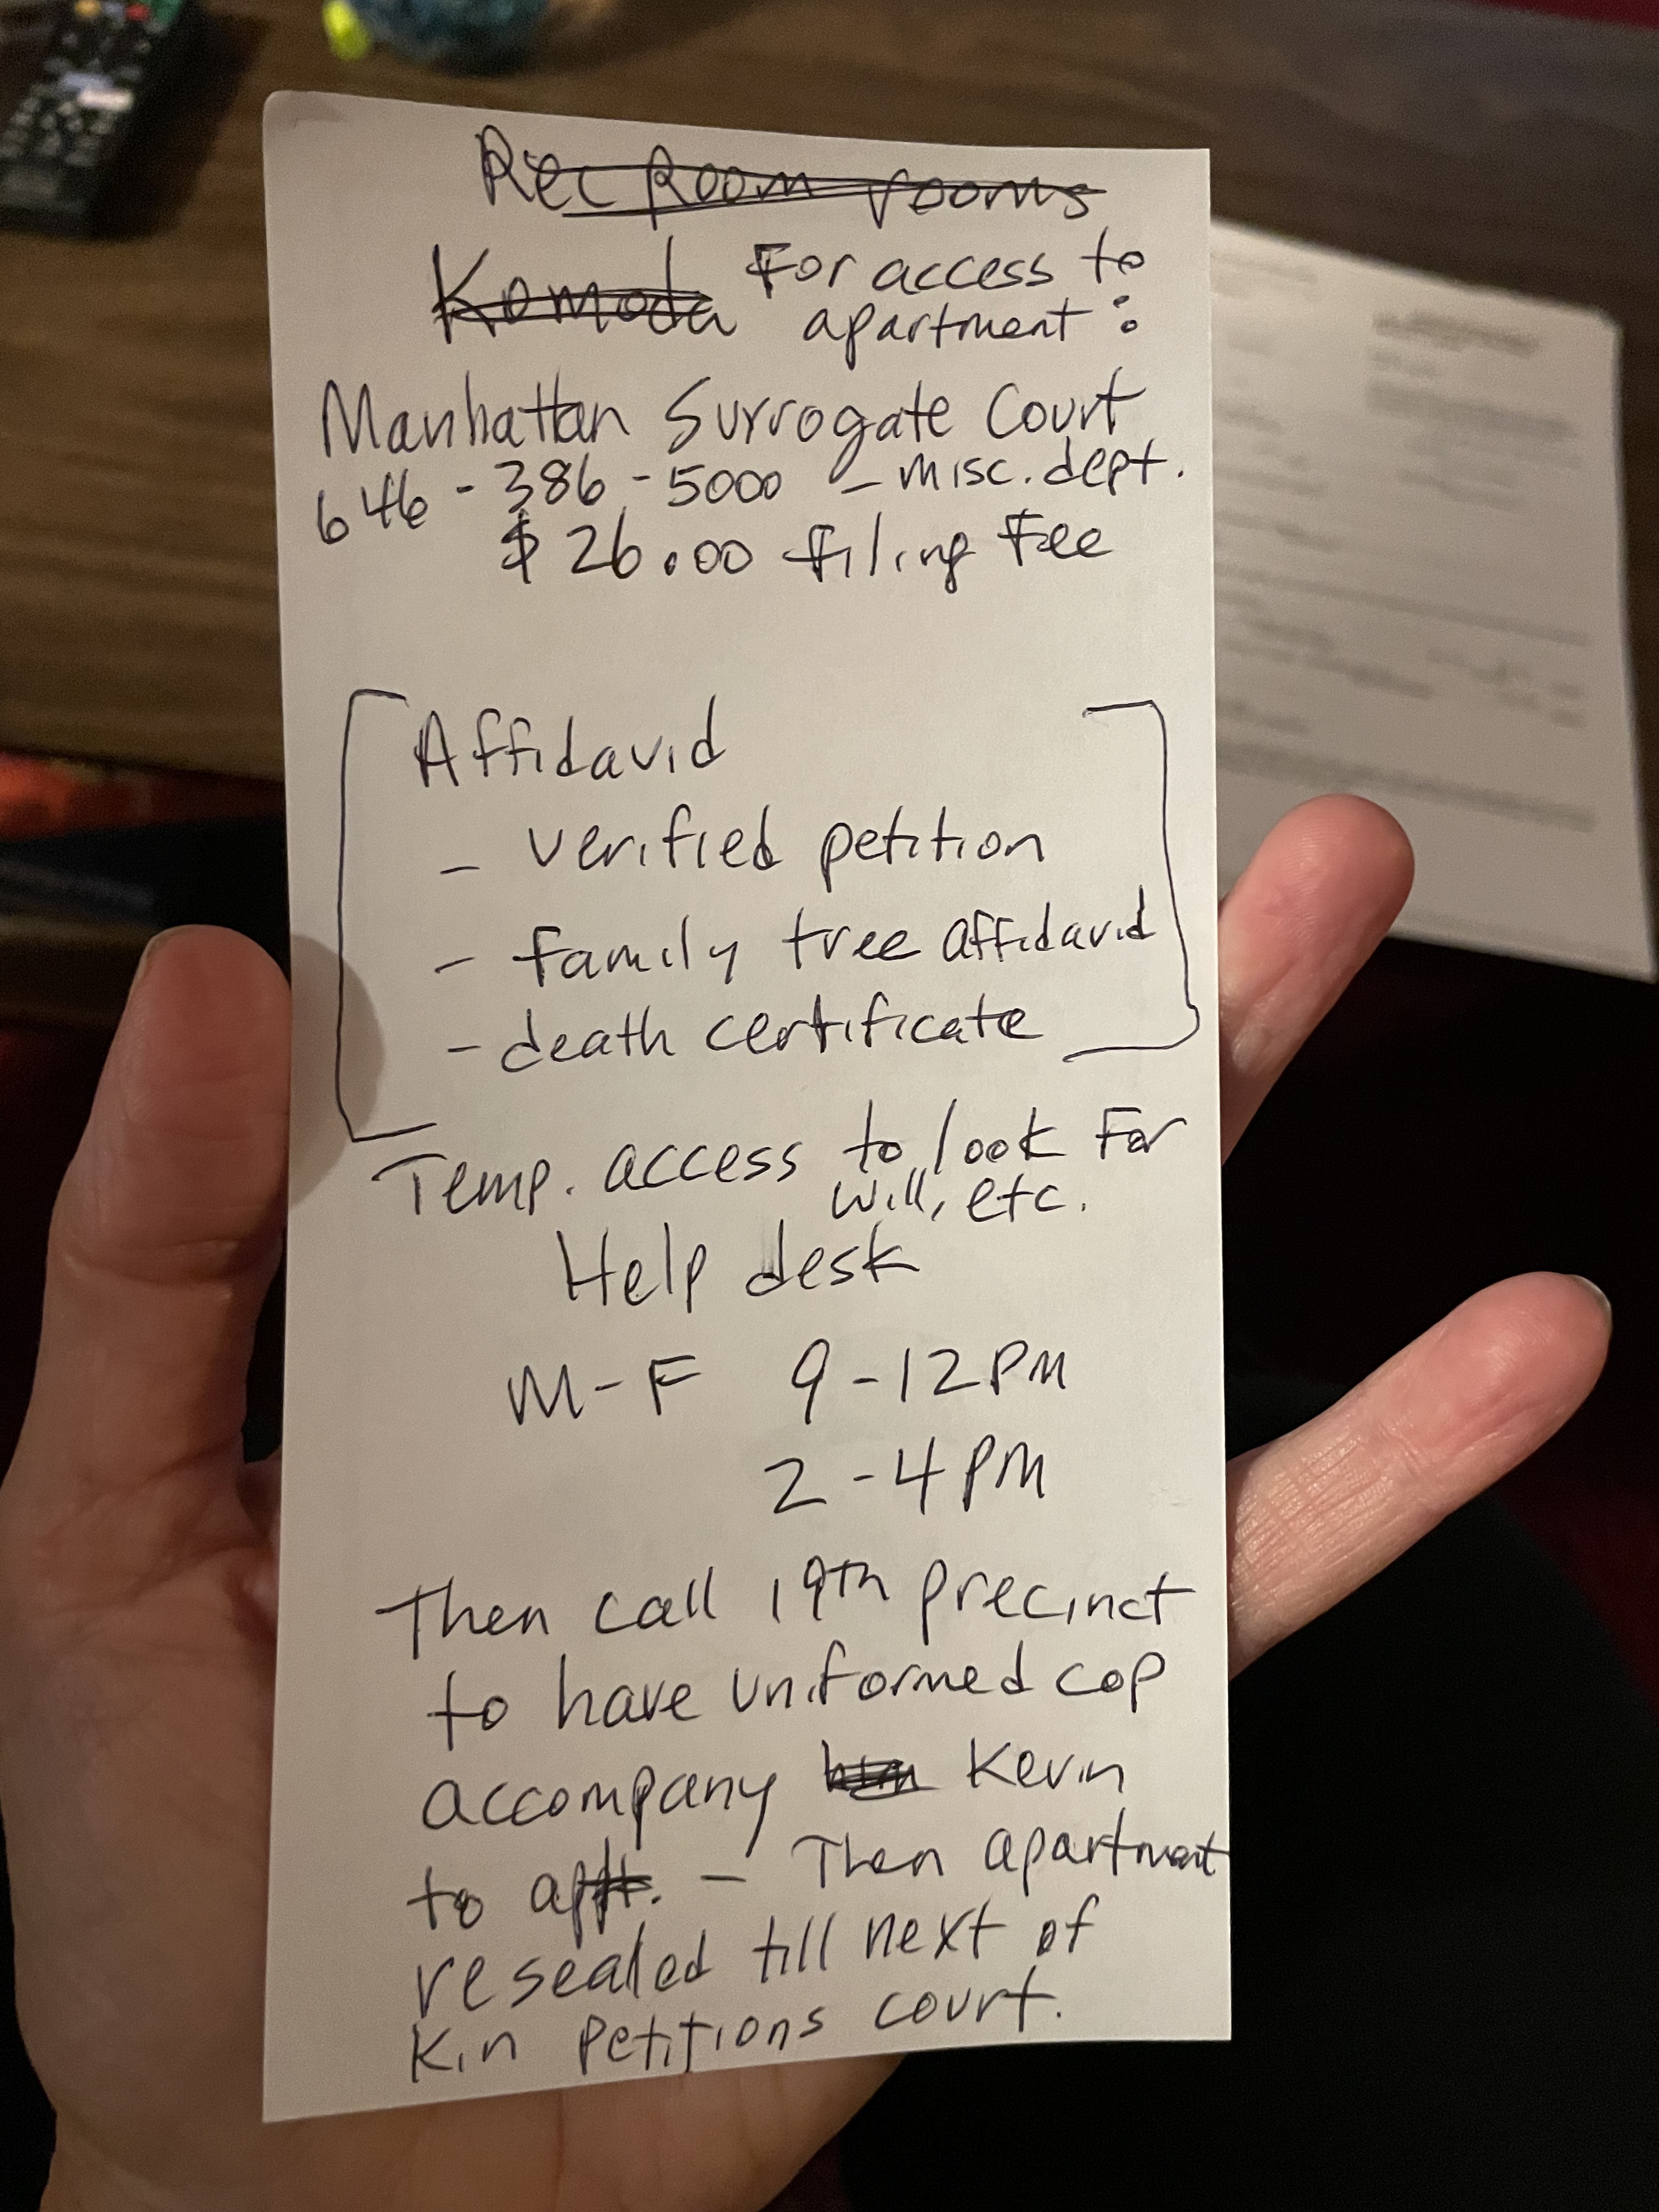 Rec Room rooms
Komoda For access to
apartment:
Manhattan Surrogate Court
646-386-5000 - misc. dept.
$26.00 Filing Fee
Affidavid
- verified petition
- family tree affidavid
- death certificate
Temp. access to look for
will, etc.
Help desk
M-F 9-12PM
2-4PM
Then call 19th precinct
to have uniformed cop
accompany him Kevin
to apt. - Then apartment
resealed till next of
Kin petitions court.